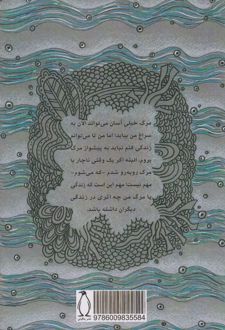 مرگ خیلی آسان می‌تواند الان به
سراغ من بیاید؛ اما من تا می‌توانم
زندگی کنم نباید به پیشواز مرگ
بروم. البته اگر یک وقتی ناچار با
مرگ روبه‌رو شدم -که می‌شوم-
مهم نیست؛ مهم این است که زندگی
یا مرگ من چه اثری در زندگی
دیگران داشته باشد.
9786009835584